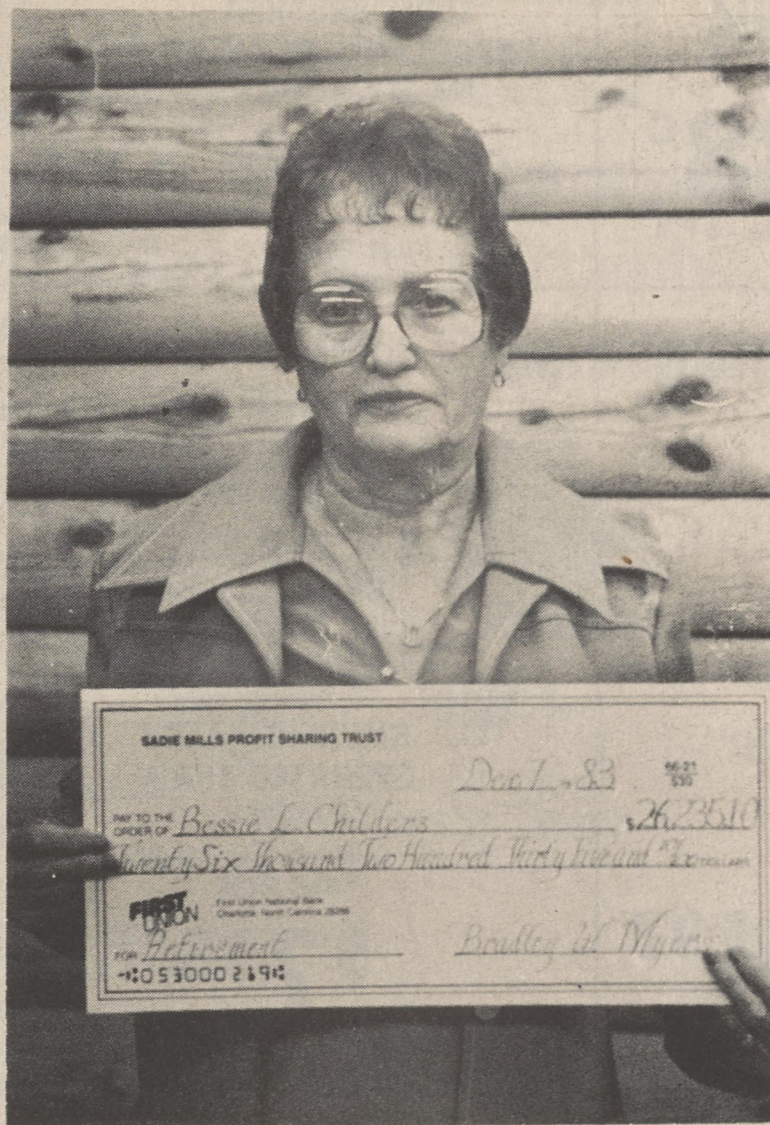 SADIE MILLS PROFIT SHARING TRUST
Dec 7 19 83
66-21
530
PAY TO THE
ORDER OF Bessie L. Childers $ 26,235.10
Twenty Six Thousand Two Hundred Thirty Five and 10/100 DOLLARS
FIRST UNION First Union National Bank
Charlotte, North Carolina 28288
FOR Retirement Bradley W. Myers
⑆053000219⑆